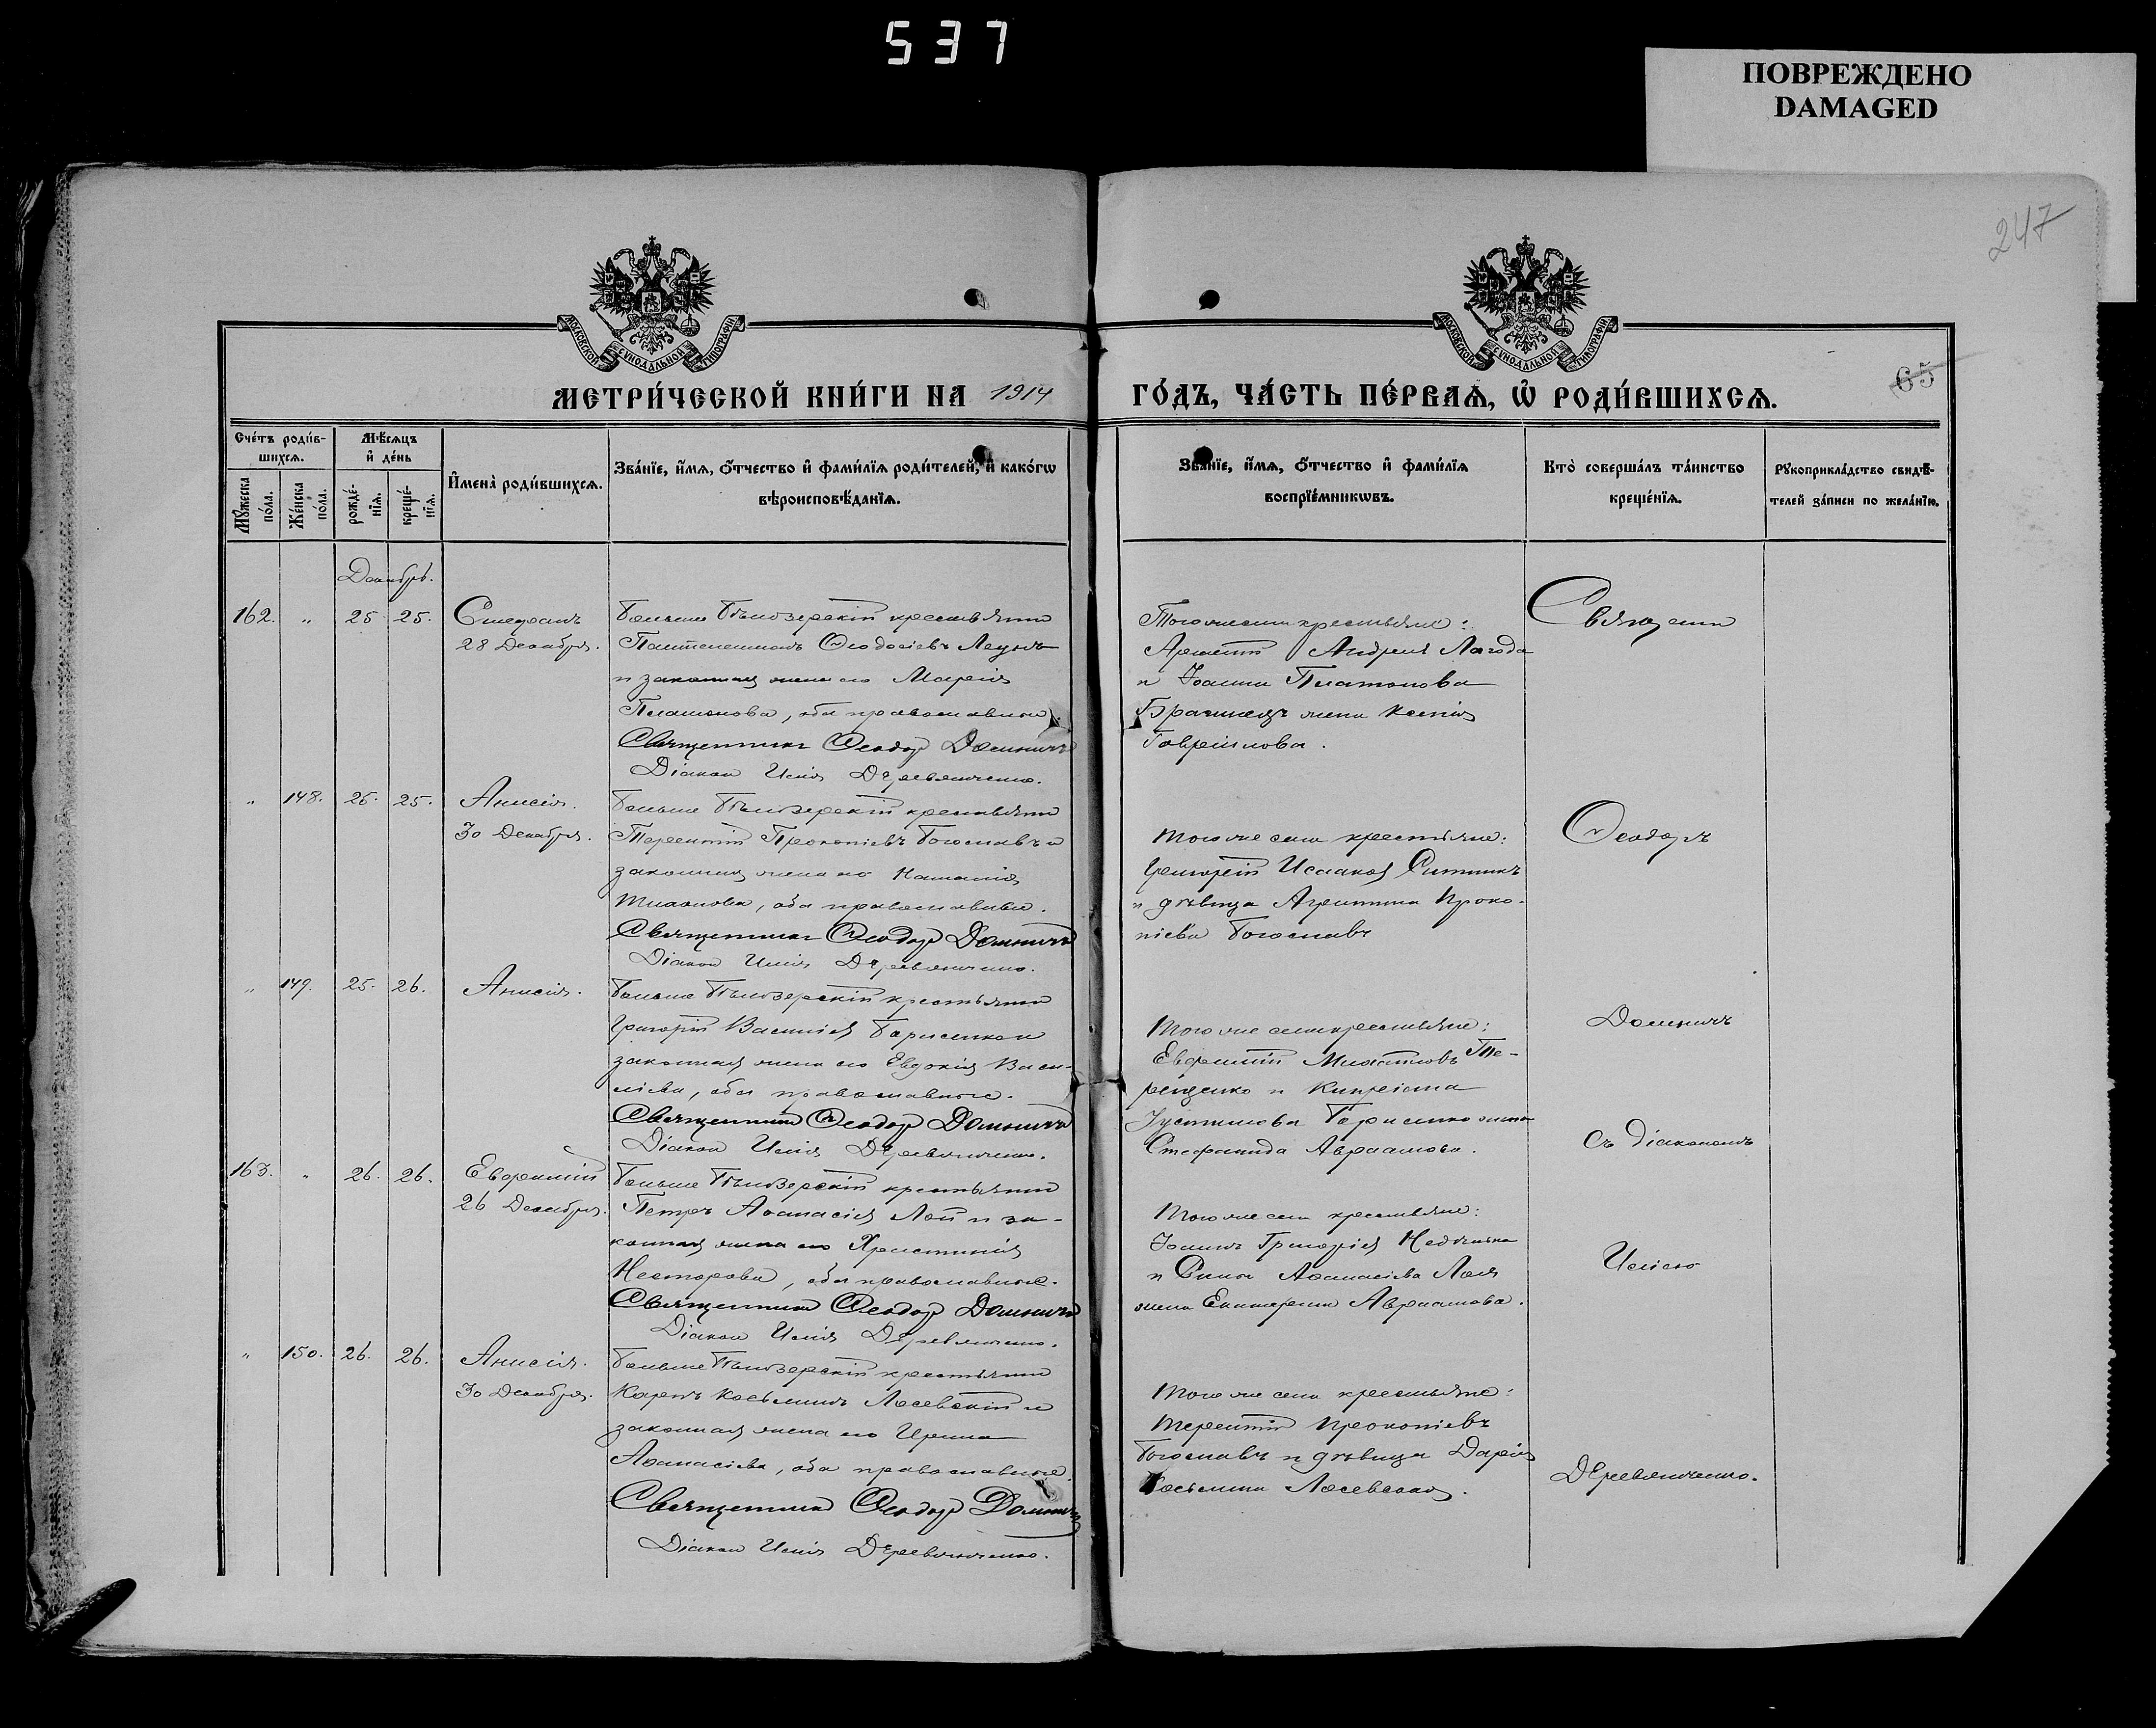 537
ПОВРЕЖДЕНО
DAMAGED
247
МОСКОВСКОЙ СѴНОДАЛЬНОЙ ТИПОГРАФІИ
МОСКОВСКОЙ СѴНОДАЛЬНОЙ ТИПОГРАФІИ
65
МЕТРИ́ЧЕСКОЙ КНИ́ГИ НА 1914 ГО́ДЪ, ЧА́СТЬ ПЕ́РВАѦ, Ѡ҆ РОДИ́ВШИХСѦ.
Сче́тъ роди́в-
шихсѧ.
Мꙋ́жеска по́ла.
Же́нска по́ла.
Мѣ́сѧцъ
и҆ де́нь
рожде́-
нїѧ.
креще́-
нїѧ.
И҆мена̀ роди́вшихсѧ.
Зва́нїе, и҆́мѧ, ѻ҆́тчество и҆ фами́лїѧ роди́телей, и҆ како́гѡ
вѣроисповѣ́данїѧ.
Зва́нїе, и҆́мѧ, ѻ҆́тчество и҆ фами́лїѧ
воспрїе́мникѡвъ.
Кто̀ соверша́лъ та́инство
креще́нїѧ.
Рꙋкоприкла́дство свидѣ́-
телей за́писи по жела́нїю.
Декабрь.
162. " 25 25. Стефанъ
28 Декабря.
Больше Бѣлозерскій крестьянинъ
Пантелеимонъ Ѳеодосіевъ
и законная жена его Марія
Платонова, оба православные.
Священникъ Ѳеодоръ Домничъ
Діаконъ Исаія Деревянченко.
Того же села крестьяне:
Андрея Лагода
и Іоанна Платонова
жена Ксенія
Гавріилова.
Священникъ
" 148. 25. 25. Анисія.
30 Декабря.
Больше Бѣлозерскій крестьянинъ
Терентій Прокопіевъ Богославъ и
законная жена его Наталія
оба православные.
Священникъ Ѳеодоръ Домничъ
Діаконъ Исаія Деревянченко.
Того же села крестьяне:
Григорій Исаакія Ситникъ
и дѣвица Агрипина Проко-
піева Богославъ
Ѳеодоръ
" 149. 25. 26. Анисія.
Больше Бѣлозерскій крестьянинъ
Григорій Василія Борисенко и
законная жена его Евдокія Васи-
ліева, оба православные.
Священникъ Ѳеодоръ Домничъ
Діаконъ Исаія Деревянченко.
Того же села крестьяне:
Евфимій Те-
рещенко и Кипріана
Іустинова Борисенко жена
Стефанида Авраамова.
Домничъ
съ діакономъ
163. " 26. 26. Евфимій
26 Декабря.
Больше Бѣлозерскій крестьянинъ
Петръ Аѳанасія Лой и за-
конная жена его Христинія
Несторова, оба православные.
Священникъ Ѳеодоръ Домничъ
Діаконъ Исаія Деревянченко.
Того же села крестьяне:
Іоаннъ Григорія
и Аѳанасіева Лоя
жена Екатерина Авраамова.
Исаіею
" 150. 26. 26. Анисія.
30 Декабря.
Больше Бѣлозерскій крестьянинъ
Карпъ Косьминъ Лосевскій и
законная жена его Ирина
Аѳанасіева, оба православные.
Священникъ Ѳеодоръ Домничъ
Діаконъ Исаія Деревянченко.
Того же села крестьяне:
Терентій Прокопіевъ
Богославъ и дѣвица Дарія
Косьмина Лосевская.
Деревянченко.